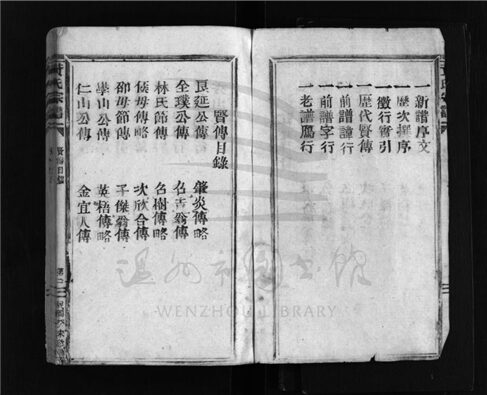 一新譜序文
一歷次撰序
一徵行實引
一歷代賢傳
一前譜諱行
一前譜字行
一老譜鴈行
賢傳目錄
良延公傳 肇炎傳略
全璞公傳 名吉翁傳
林氏節傳 名樹傳略
侯母傳略 次欣合傳
邵母節傳 子傑翁傳
學山公傳 英梧傳略
仁山公傳 金宜人傳
黃氏宗譜
賢傳目錄
温州市圖書館
WENZHOU LIBRARY